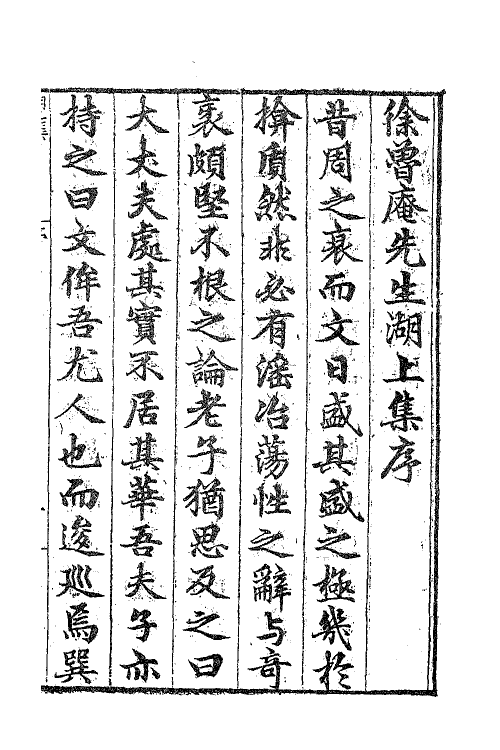 徐魯庵先生湖上集序
昔周之衰而文日盛其盛之極幾於
揜质然非必有滛冶荡性之辭与奇
袤頗堅不根之論老子猶思及之曰
大丈夫處其實不居其華吾夫子亦
持之曰文侔吾尤人也而逡廵焉巽